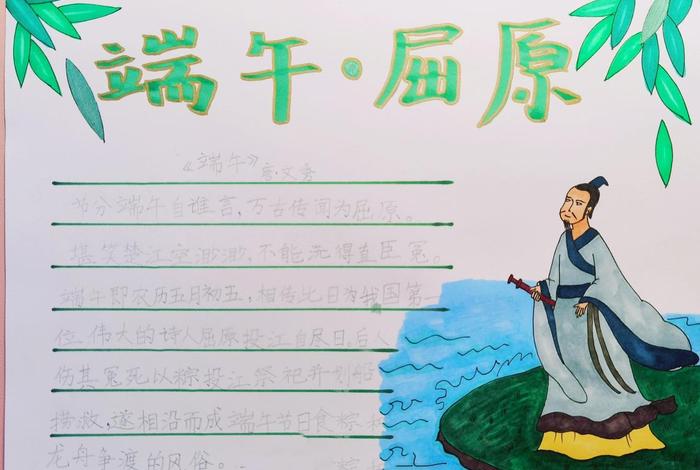 端午·屈原
《端午》唐·文秀
节分端午自谁言,万古传闻为屈原。
堪笑楚江空渺渺,不能洗得直臣冤。
端午即农历五月初五,相传此日为我国第一
位伟大的诗人屈原投江自尽日,后人
伤其冤死,以粽投江祭祀并划船
捞救,遂相沿而成端午节日食粽和
龙舟争渡的风俗。